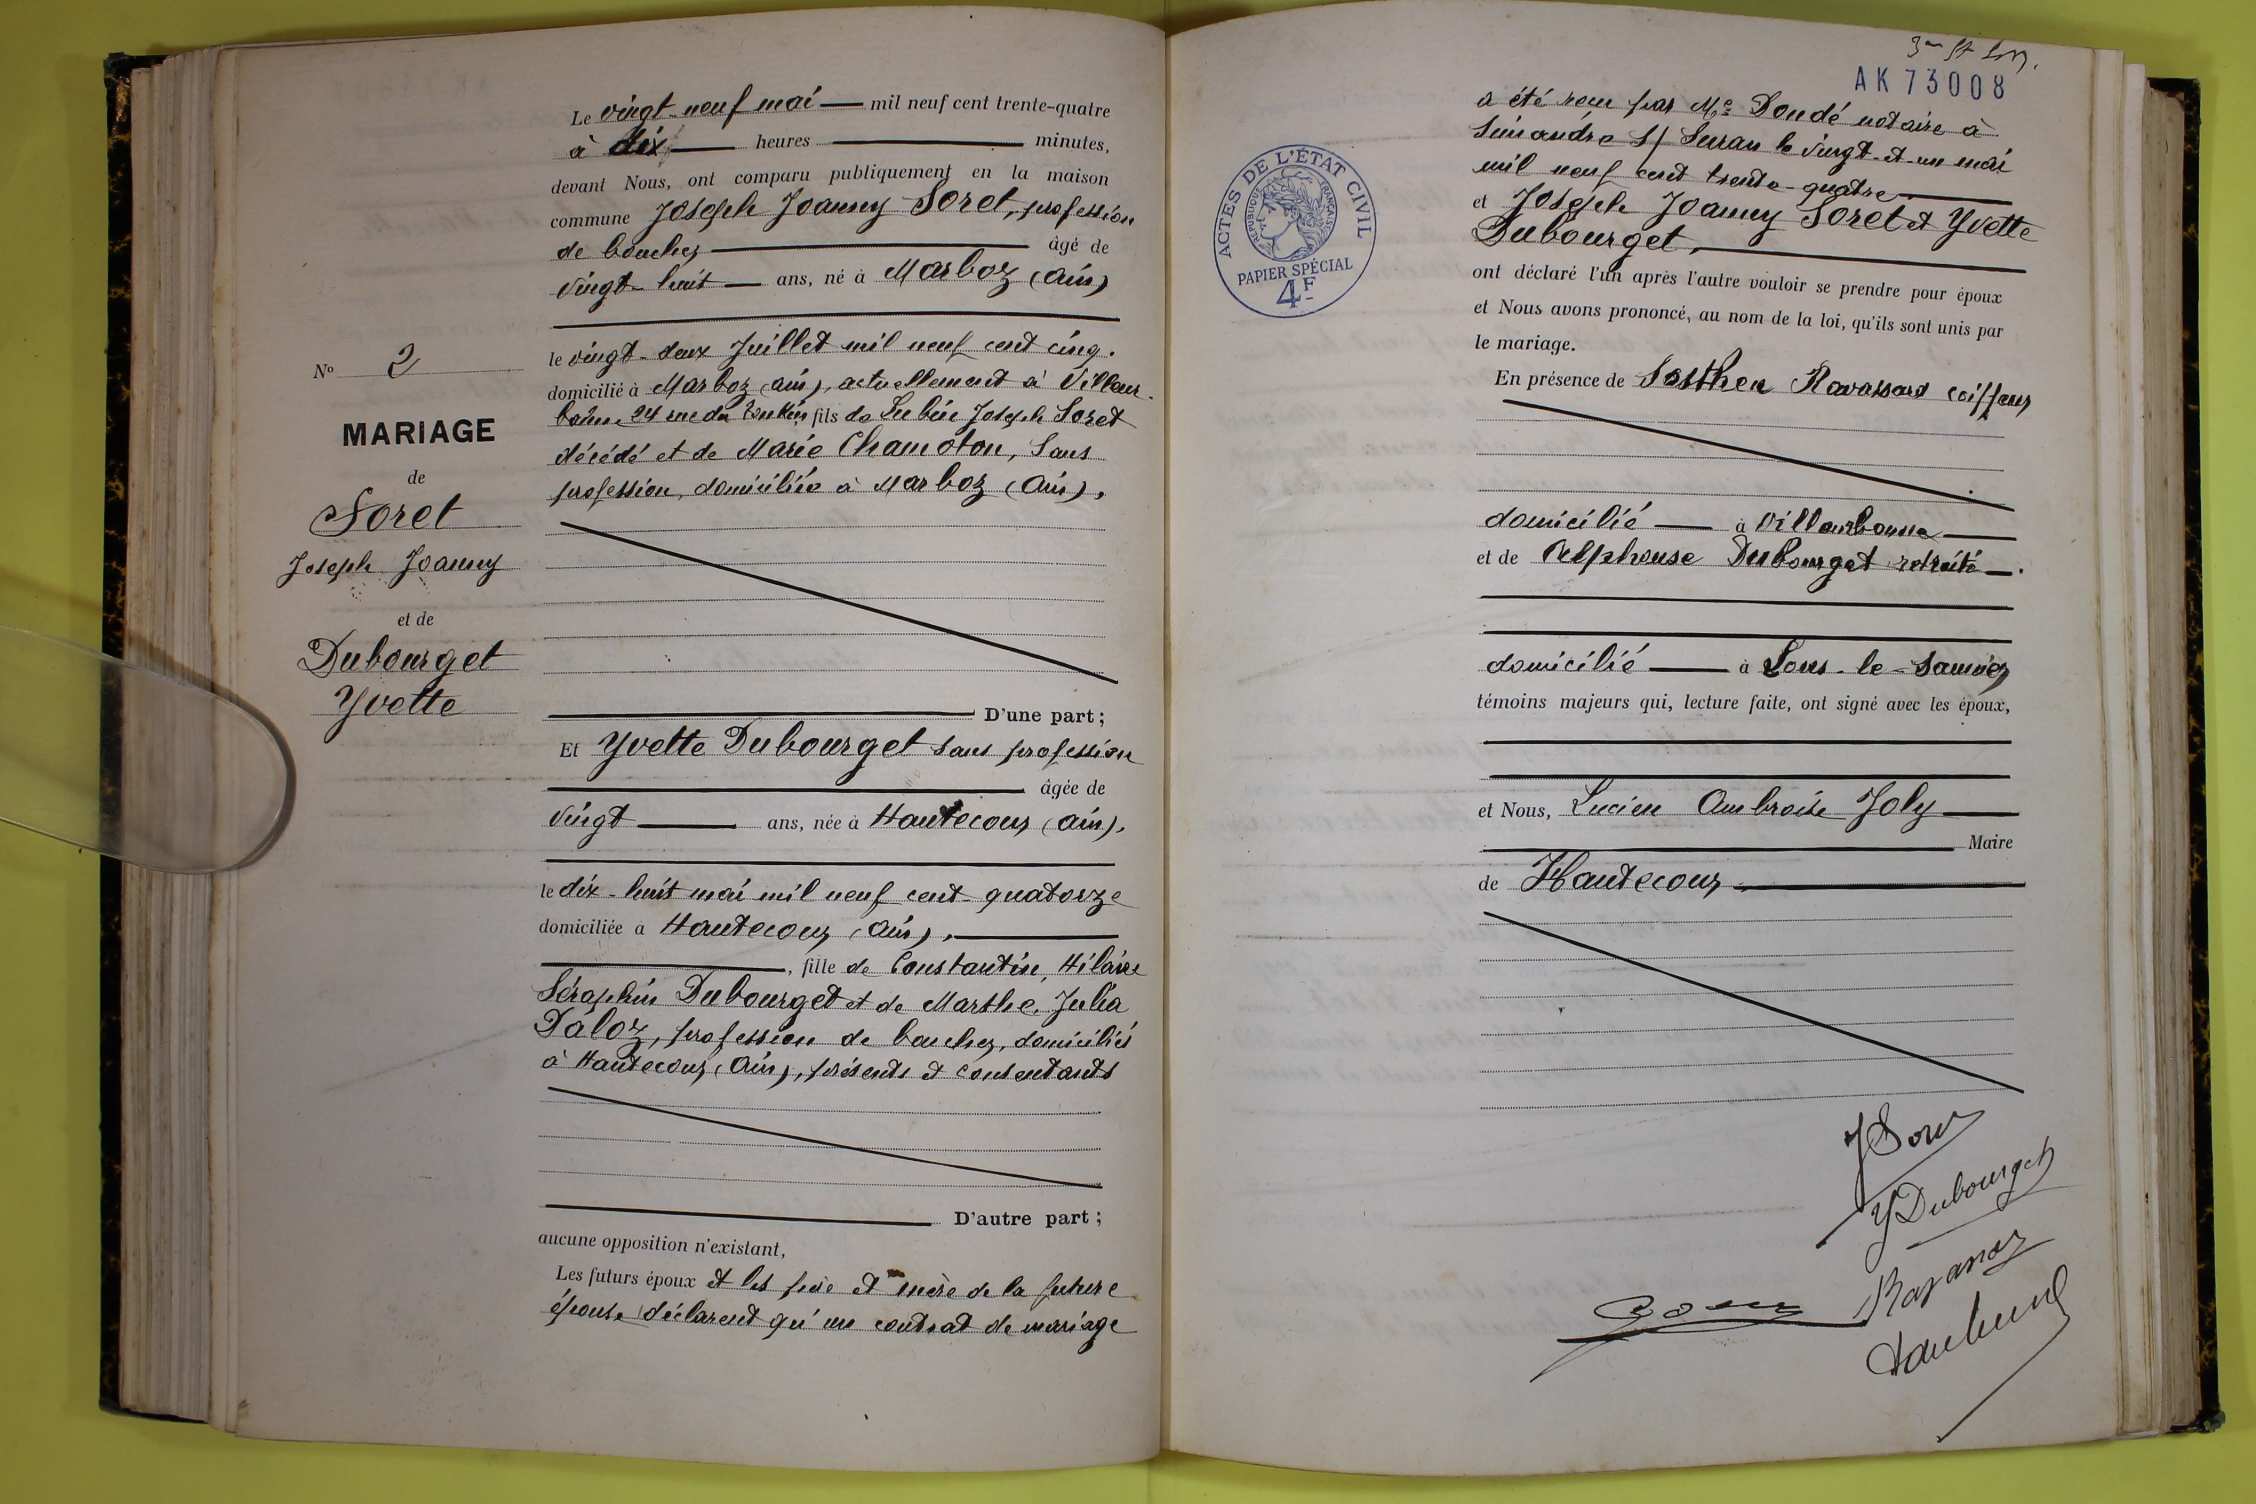 Le vingt-neuf mai mil neuf cent trente-quatre
à dix heures minutes,
devant Nous, ont comparu publiquement en la maison
commune Joseph Joanny Soret, profession
de boucher âgé de
vingt-huit ans, né à Marboz (Ain)
le vingt-deux Juillet mil neuf cent cinq.
domicilié à Marboz (Ain), actuellement à Villeur-
banne 24 rue du Tonkin fils de Lubin Joseph Soret
décédé et de Marie Chamoton, Sans
profession, domiciliée à Marboz (Ain).
No 2
MARIAGE
de
Soret
Joseph Joanny
et de
Dubourget
Yvette
D'une part;
Et Yvette Dubourget sans profession
âgée de
vingt ans, née à Hautecour (Ain).
le dix-huit mai mil neuf cent-quatorze
domiciliée à Hautecour (Ain),
, fille de Constantin, Hilaire
Séraphin Dubourget et de Marthe, Julia
Daloz, profession de boucher, domiciliés
à Hautecour (Ain), présents et consentants
D'autre part;
aucune opposition n'existant,
Les futurs époux et les père et mère de la future
épouse déclarent qu'un contrat de mariage
AK 73008
a été reçu par Me Dondé notaire à
Simandre S/ Suran le vingt-et-un mai
mil neuf cent trente-quatre
et Joseph Joanny Soret et Yvette
Dubourget,
ont déclaré l'un après l'autre vouloir se prendre pour époux
et Nous avons prononcé, au nom de la loi, qu'ils sont unis par
le mariage.
En présence de Sosthen Ravassard coiffeur
domicilié à Villeurbanne
et de Alphonse Dubourget retraité.
domicilié à Lons-le-Saunier
témoins majeurs qui, lecture faite, ont signé avec les époux,
et Nous, Lucien Ambroise Joly
Maire
de Hautecour
ACTES DE L'ÉTAT CIVIL
RÉPUBLIQUE FRANÇAISE
PAPIER SPÉCIAL
4F
J Soret
Y Dubourget